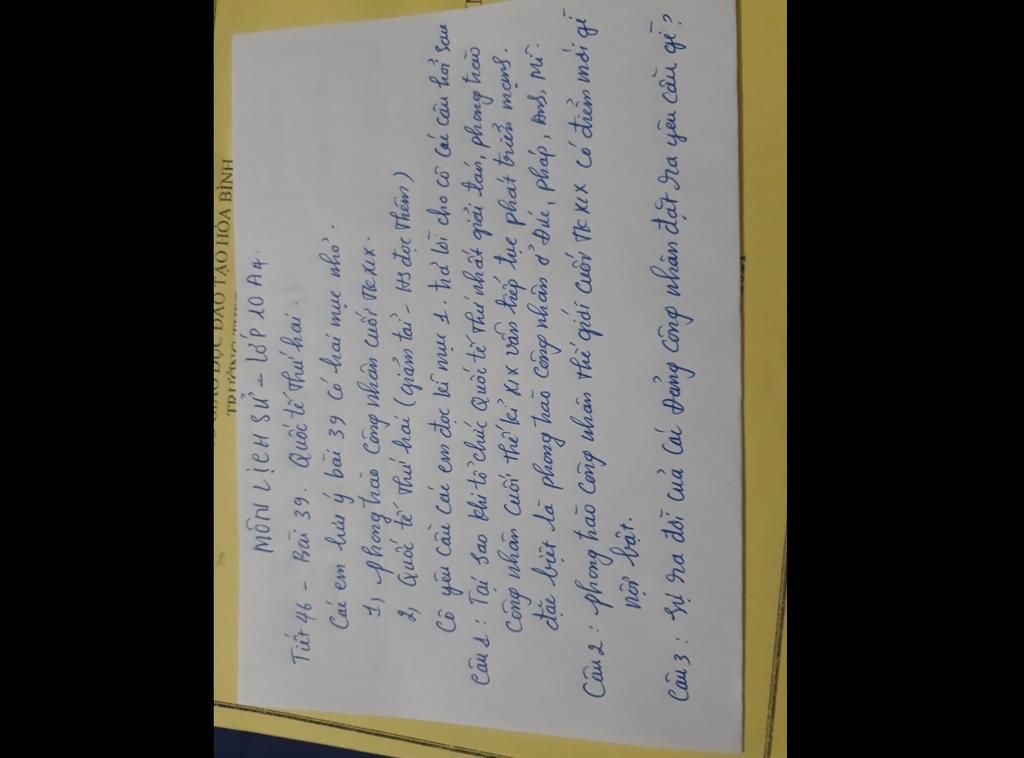 GIÁO DỤC ĐÀO TẠO HÒA BÌNH
MÔN LỊCH SỬ - LỚP 10 A4.
Tiết 46 - Bài 39. Quốc tế Thứ hai.
Các em lưu ý bài 39 có hai mục nhỏ.
1, phong trào công nhân cuối TK XIX.
2, Quốc tế Thứ hai (giảm tải - HS đọc thêm)
Cô yêu cầu các em đọc kĩ mục 1. trả lời cho cô các câu hỏi sau
Câu 1: Tại sao khi tổ chức Quốc tế Thứ nhất giải tán, phong trào
công nhân cuối thế kỉ XIX vẫn tiếp tục phát triển mạnh.
đặc biệt là phong trào công nhân ở Đức, pháp, Anh, Mĩ.
Câu 2: phong trào công nhân thế giới cuối TK XIX có điểm mới gì
nổi bật.
Câu 3: Sự ra đời của các Đảng công nhân đặt ra yêu cầu gì?